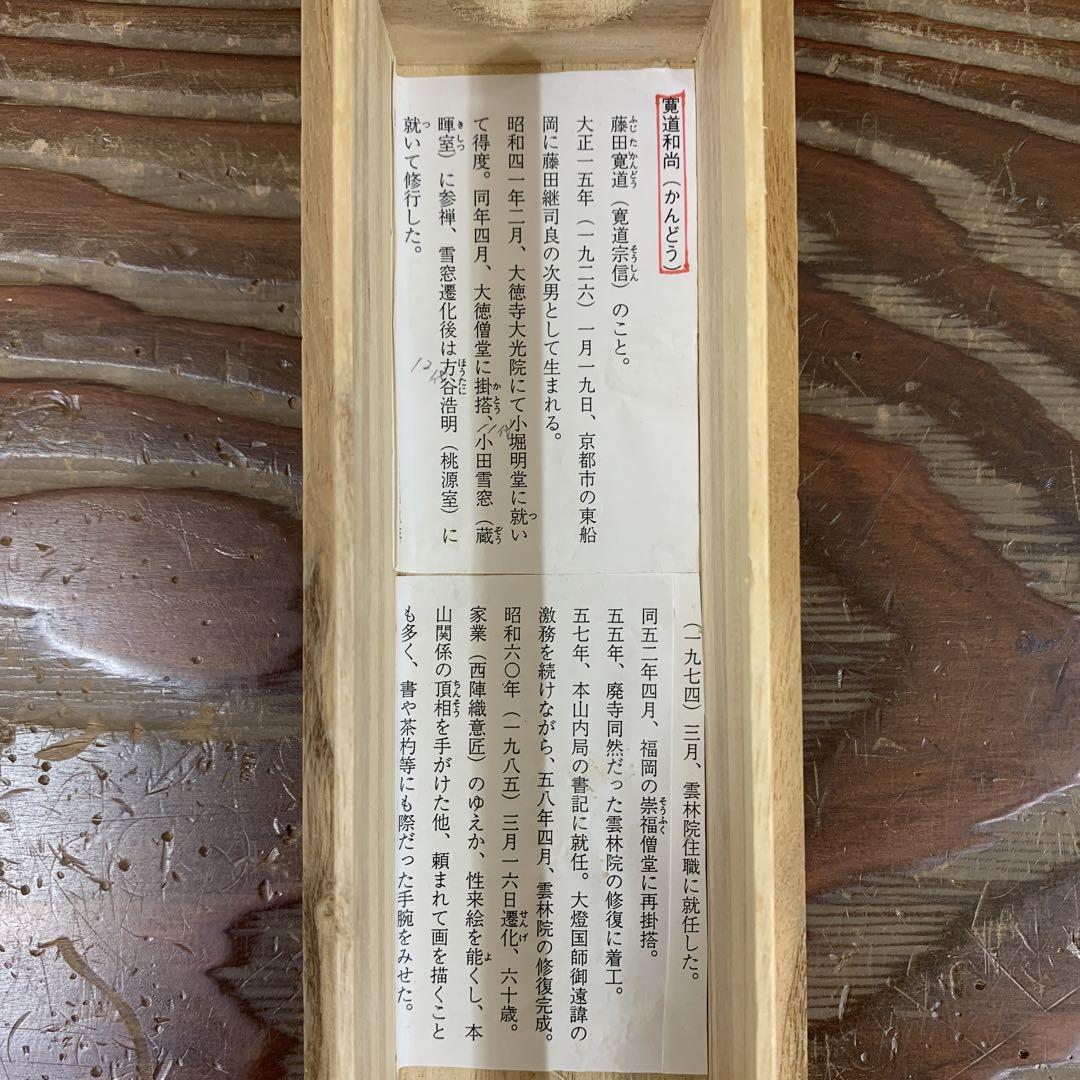 寛道和尚（かんどう）
藤田寛道（寛道宗信）のこと。
ふじたかんどう
そうしん
大正一五年（一九二六）一月一九日、京都市の東船
岡に藤田継司良の次男として生まれる。
昭和四一年二月、大徳寺大光院にて小堀明堂に就い
つ
て得度。同年四月、大徳僧堂に掛搭、小田雪窓（蔵
かとう
ぞう
11代
暉室）に参禅、雪窓遷化後は方谷浩明（桃源室）に
きしつ
ほうたに
12代
就いて修行した。
つ
（一九七四）三月、雲林院住職に就任した。
同五二年四月、福岡の崇福僧堂に再掛搭。
そうふく
五五年、廃寺同然だった雲林院の修復に着工。
五七年、本山内局の書記に就任。大燈国師御遠諱の
激務を続けながら、五八年四月、雲林院の修復完成。
昭和六〇年（一九八五）三月一六日遷化、六十歳。
せんげ
家業（西陣織意匠）のゆえか、性来絵を能くし、本
よ
山関係の頂相を手がけた他、頼まれて画を描くこと
ちんそう
も多く、書や茶杓等にも際だった手腕をみせた。